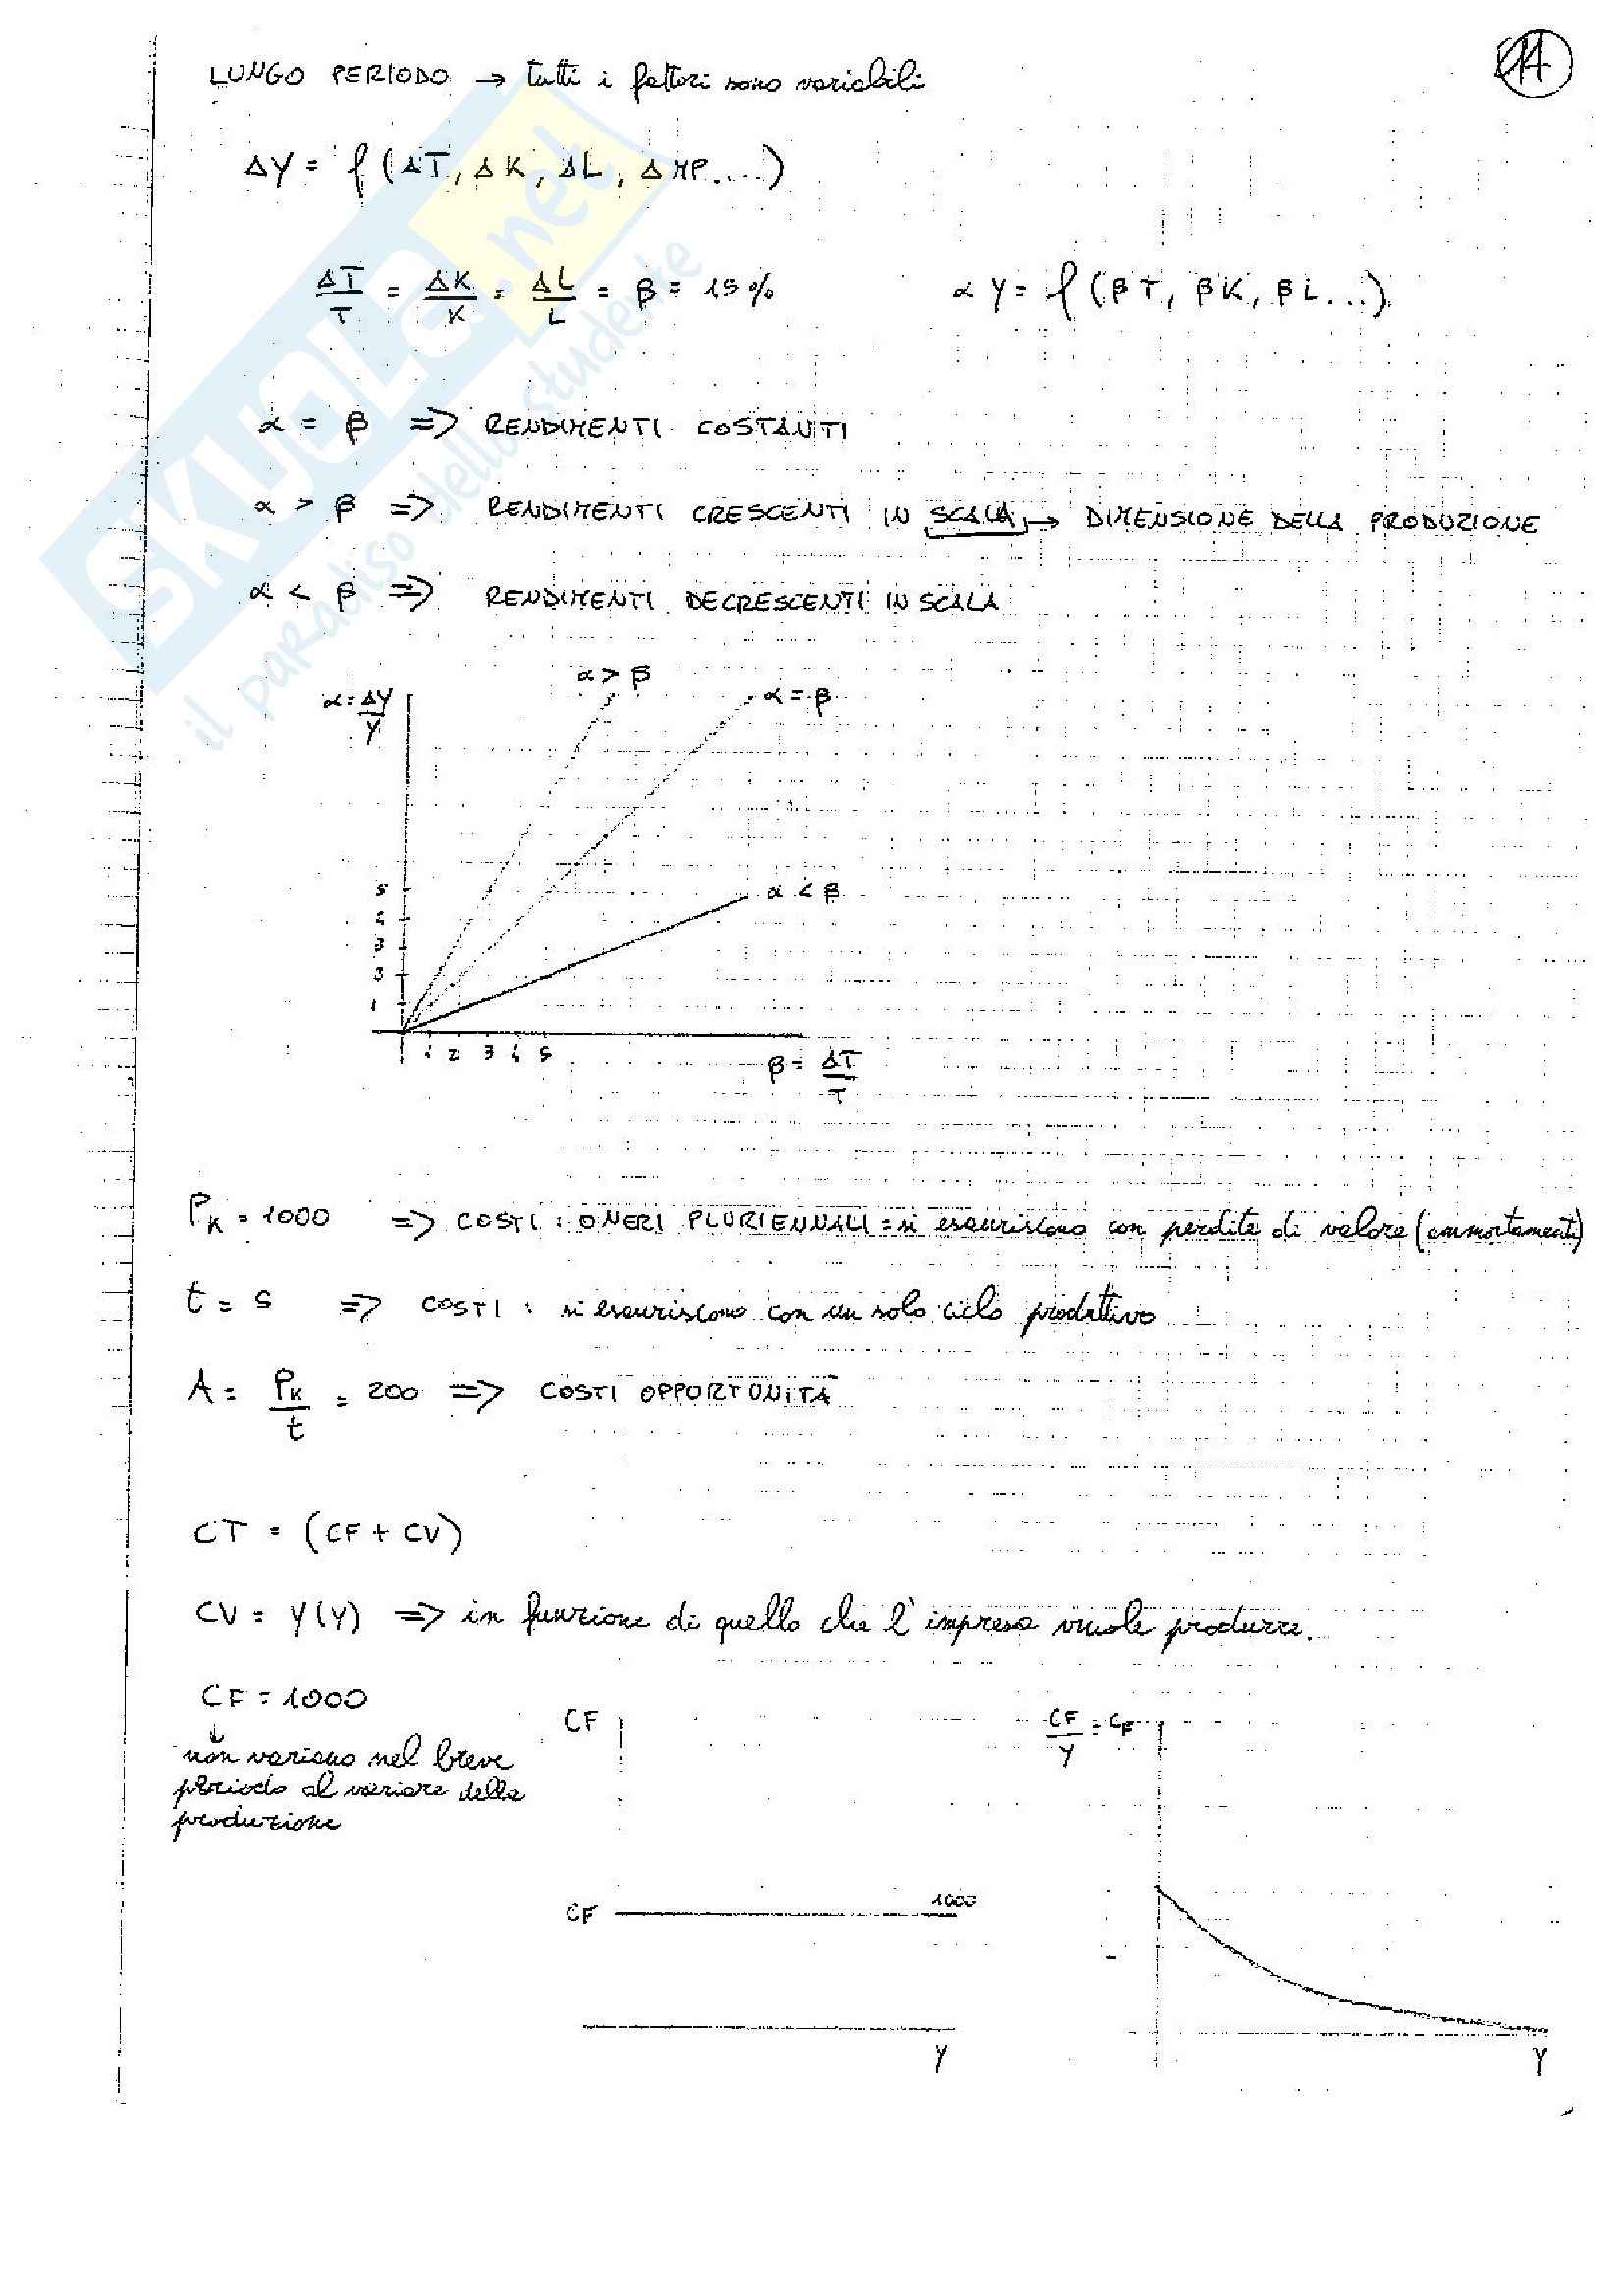 14
LUNGO PERIODO → tutti i fattori sono variabili
ΔY = f (ΔT, ΔK, ΔL, ΔMP....)
ΔT/T = ΔK/K = ΔL/L = β = 15%    αY = f (βT, βK, βL...)
α = β => RENDIMENTI COSTANTI
α > β => RENDIMENTI CRESCENTI IN SCALA → DIMENSIONE DELLA PRODUZIONE
α < β => RENDIMENTI DECRESCENTI IN SCALA
α = ΔY/Y
α > β
α = β
α < β
5
4
3
3
1
1 2 3 4 5
β = ΔT/T
PK = 1000 => COSTI : ONERI PLURIENNALI = si esauriscono con perdite di valore (ammortamenti)
t = 5 => COSTI : si esauriscono con un solo ciclo produttivo
A = PK/t = 200 => COSTI OPPORTUNITÀ
CT = (CF + CV)
CV = Y(Y) => in funzione di quello che l'impresa vuole produrre.
CF = 1000
↓
non variano nel breve
periodo al variare della
produzione
CF
CF
1000
Y
CF/Y = CF
Y
SKUOLA.net
il paradiso dello studente